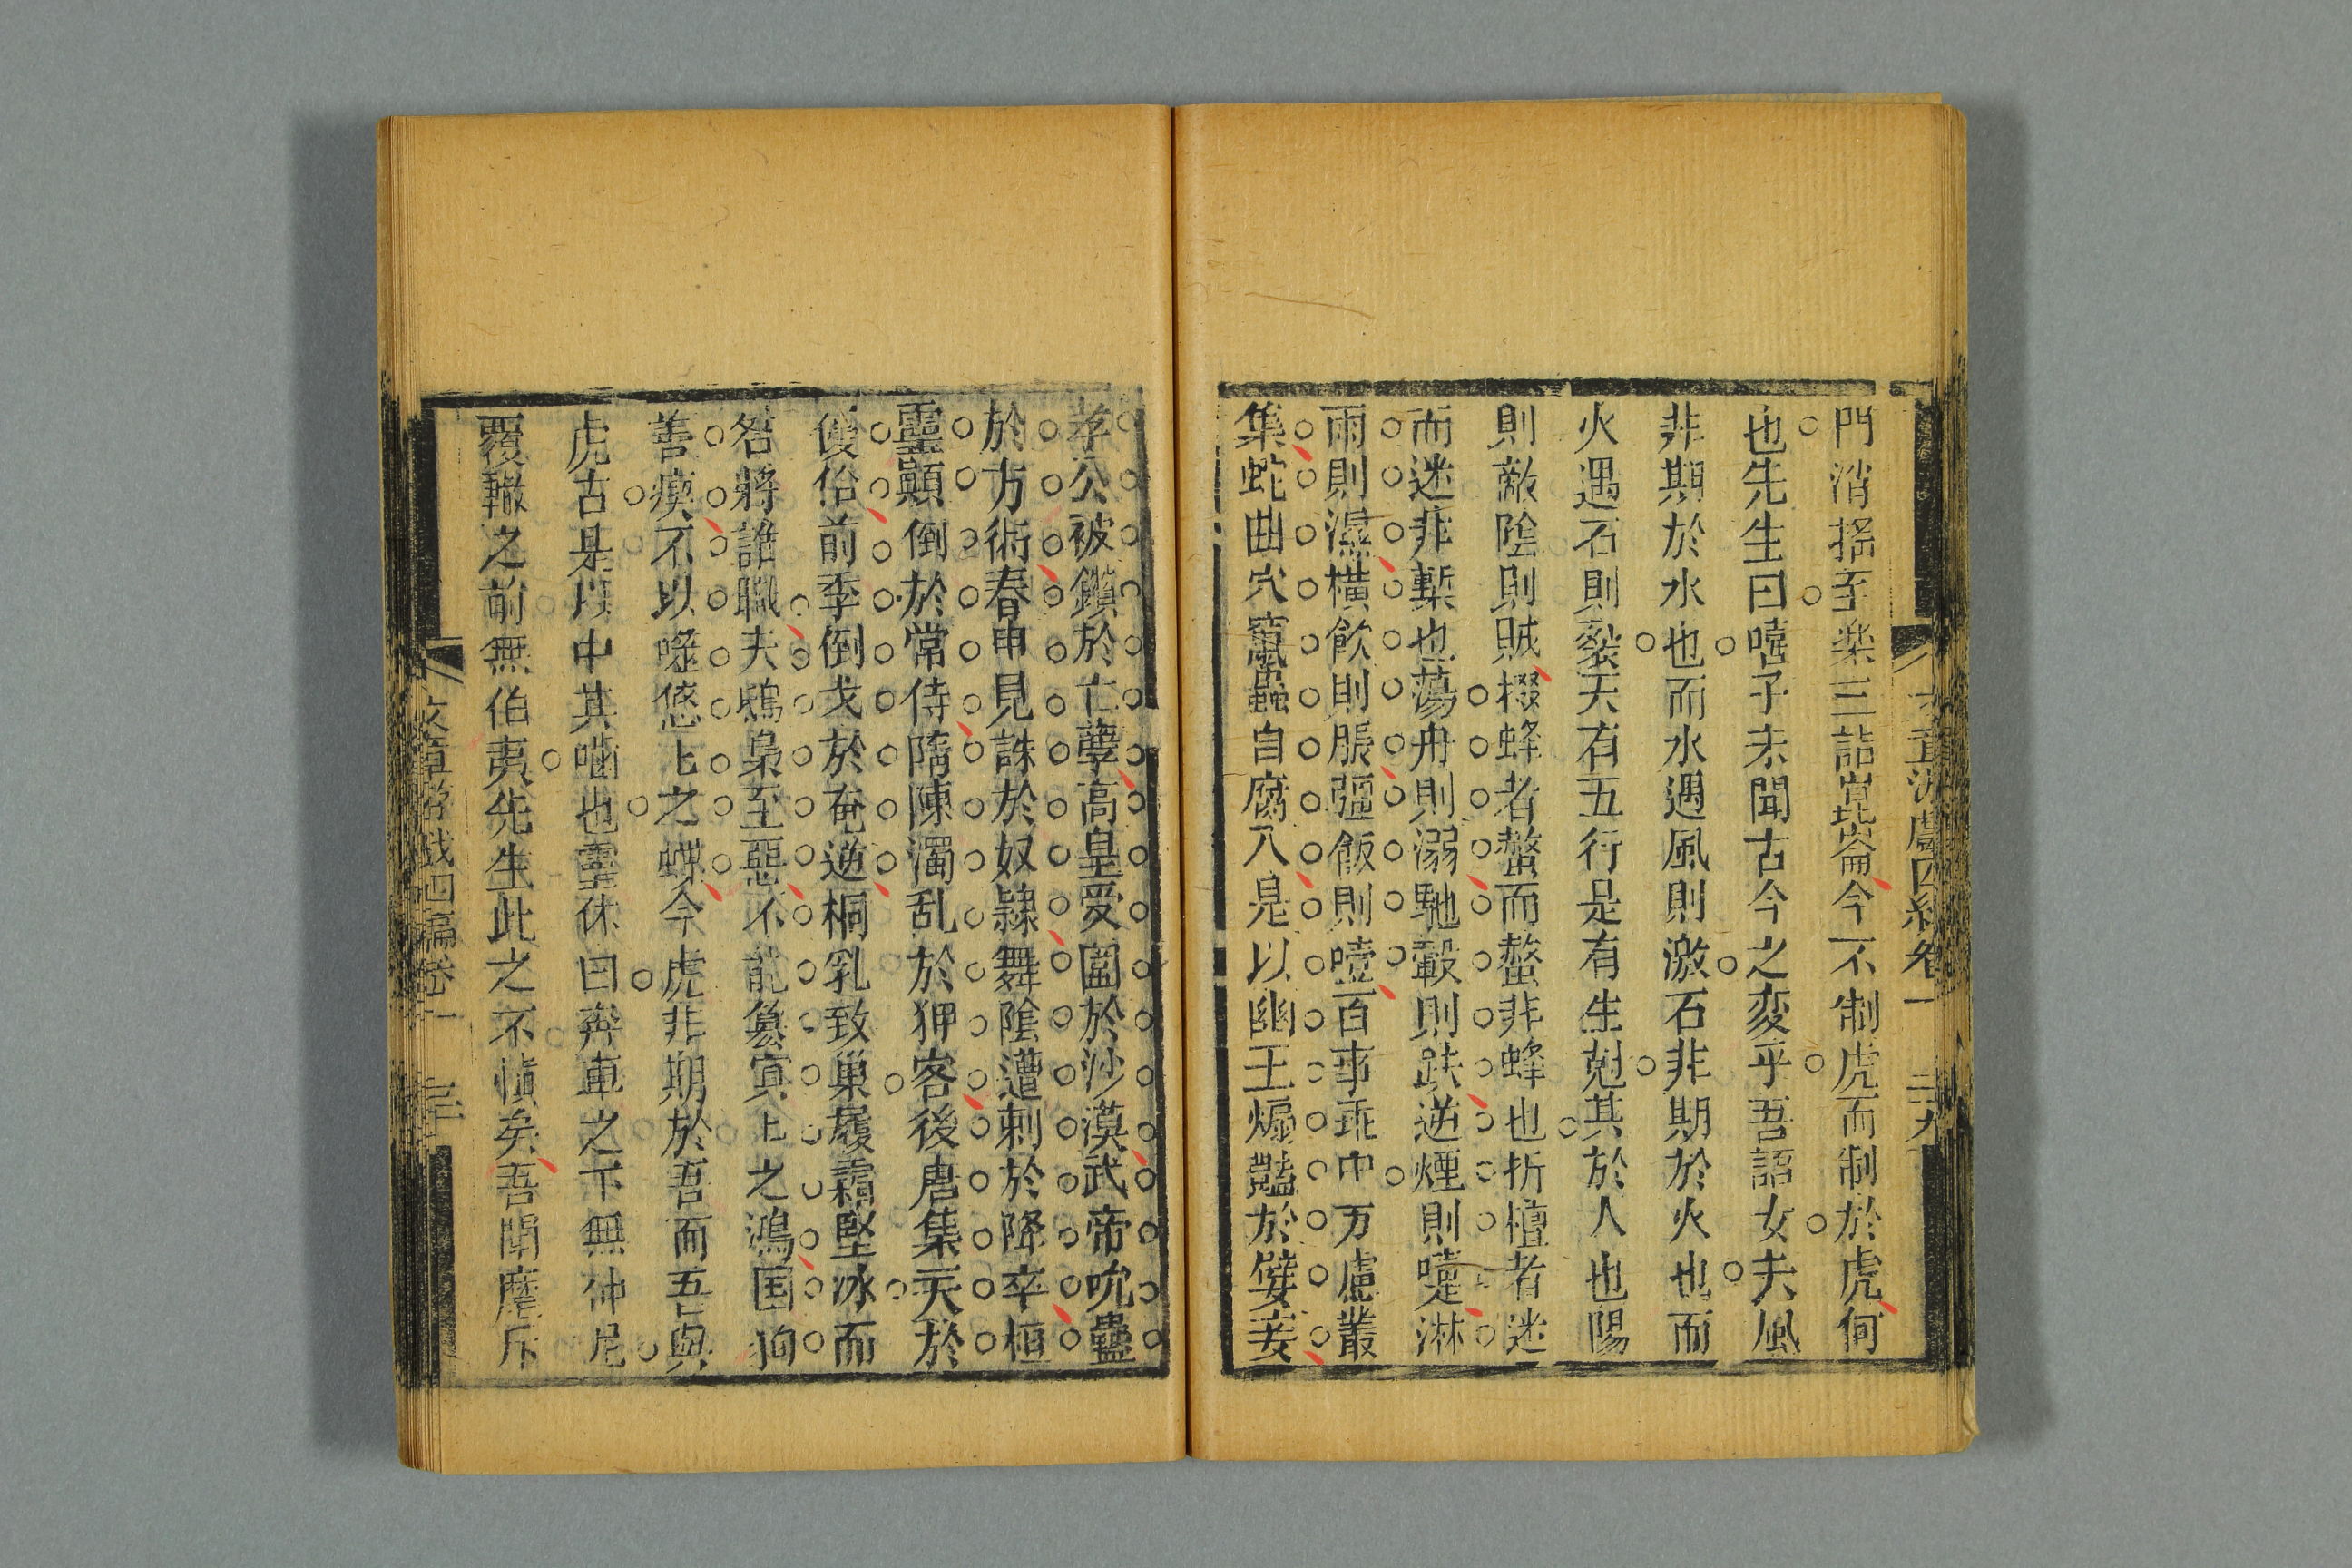 門消搖至楽三詰崑崙今不制虎而制於虎何
也先生曰嘻子未聞古今之変乎吾詔女夫風
非期於水也而水遇風則激石非期於火也而
火遇石則裂天有五行是有生尅其於人也陽
則敵陰則賊掇蜂者螫而螫非蜂也折檀者迷
而迷非槧也蕩舟則溺馳轂則趹逆煙則嚏淋
雨則濕橫飲則脹彊飯則噎百事乖中万慮叢
集蛇曲穴竄蟲自腐入是以幽王煽豔於嬖妾
孝公被鑕於亡孽高皇受圍於沙漠武帝吮蠱
於方術春申見誅於奴隸舞陰遭刺於降卒桓
靈顛倒於常侍隋陳濁乱於狎客後唐集夭於
優俗前季倒戈於奄逆桐乳致巢履霜堅冰而
咎將誰職夫鴟梟至惡不能簒寘上之鴻国狗
善瘈不以噬悠上之蝶今虎非期於吾而五與
虎古是以中其噬也靈休曰奔車之下無仲尼
覆轍之前無伯夷先生此之不慎矣吾聞麾斥
卷一 二十九
文章游戲四編卷一 三十